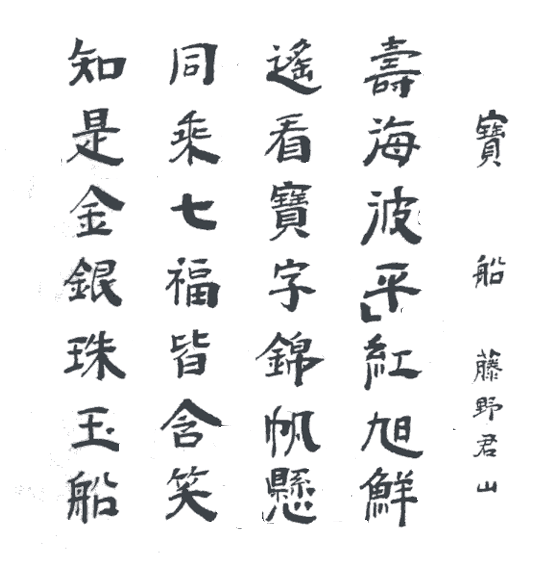 寶 船 藤野君山
壽海波平紅旭鮮
遙看寶字錦帆懸
同乘七福皆含笑
知是金銀珠玉船